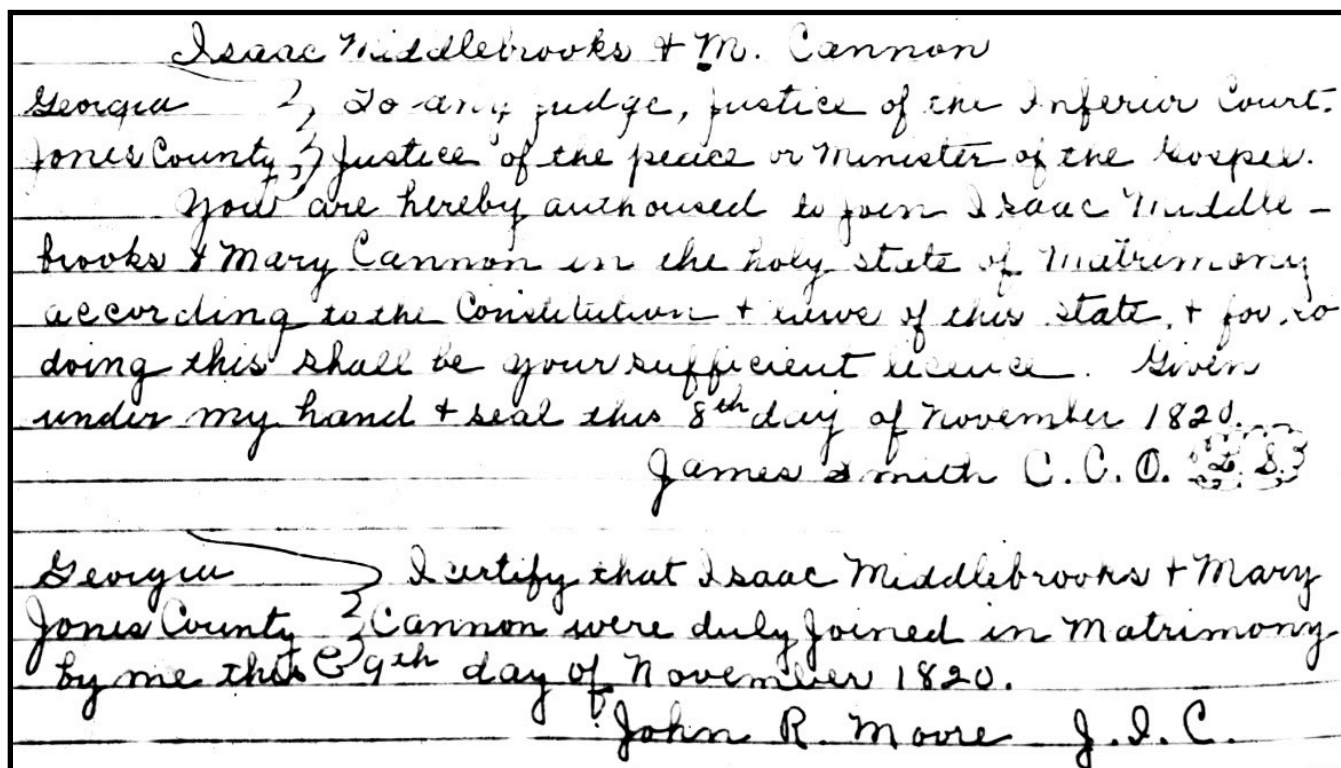 Isaac Middlebrooks & M. Cannon
Georgia } To any judge, justice of the Inferior Court.
Jones County } Justice of the peace or Minister of the Gospel.
You are hereby authoused to join Isaac Middle-
brooks & Mary Cannon in the holy state of Matrimony
according to the Constitution & of this state, & for so
doing this shall be your sufficient licence. Given
under my hand & seal this 8th day of November 1820.
James Smith C. C. O. L. S.
Georgia } I certify that Isaac Middlebrooks & Mary
Jones County } Cannon were duly Joined in Matrimony
by me this 9th day of November 1820.
John R. Moore J. I. C.